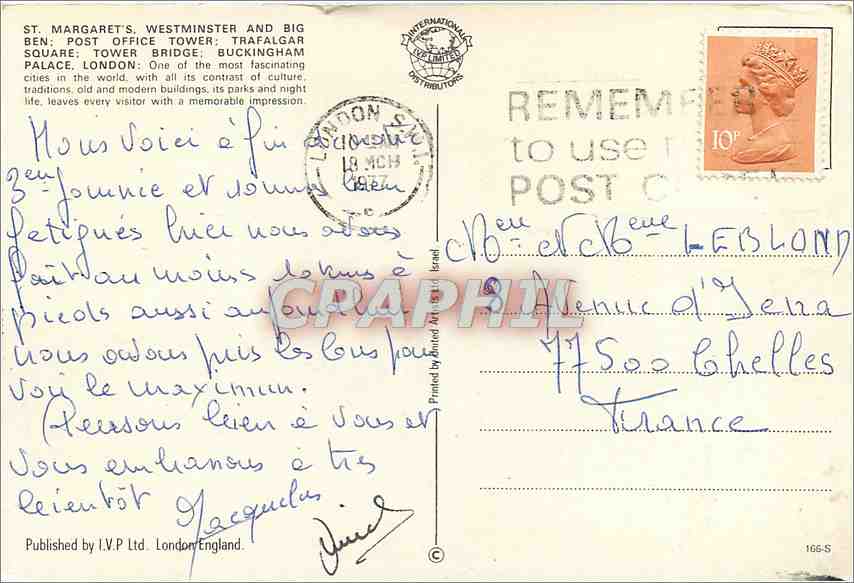 ST. MARGARET'S, WESTMINSTER AND BIG
BEN; POST OFFICE TOWER; TRAFALGAR
SQUARE; TOWER BRIDGE; BUCKINGHAM
PALACE, LONDON: One of the most fascinating
cities in the world, with all its contrast of culture,
traditions, old and modern buildings, its parks and night
life, leaves every visitor with a memorable impression.
Nous voici à fin de notre
3em journée et somme bien
fatigués hier nous avons
fait au moins 10 kms à
pieds aussi aujourd'hui
nous avons pris les bus pour
voir le maximum.
Pensons bien à vous et
vous embrassons à très
bientôt
Jacqueline
Published by I.V.P Ltd. London England.
INTERNATIONAL
I.V.P LIMITED
DISTRIBUTORS
LONDON S.W.1
18 MCH
1977
REMEMBER
to use
POST
10P
Printed by United Artists Ltd Israel
©
LEBLOND
8 Avenue d'Iena
77500 Chelles
France
166-S
CPAPHIL